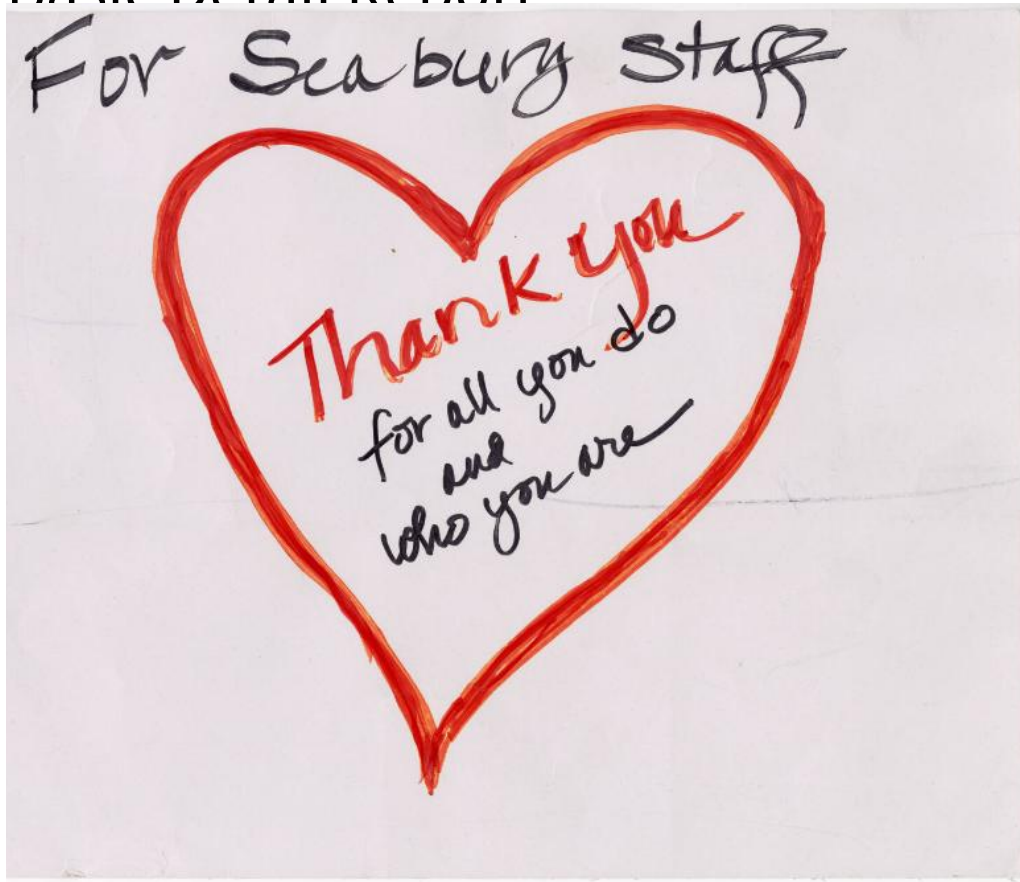 For Seabury Staff
Thank you
for all you do
and
who you are